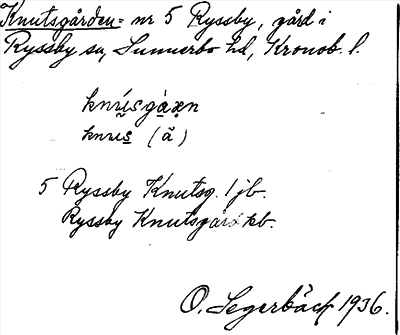 Knutsgården = nr 5 Ryssby, gård i
Ryssby sn, Sunnerbo hd, Kronob. l.
knũsgaxn
knus (ã)
5 Ryssby Knutsg. 1 jb.
Ryssby Knutsgård kb.
O. Segerbäck 1936.